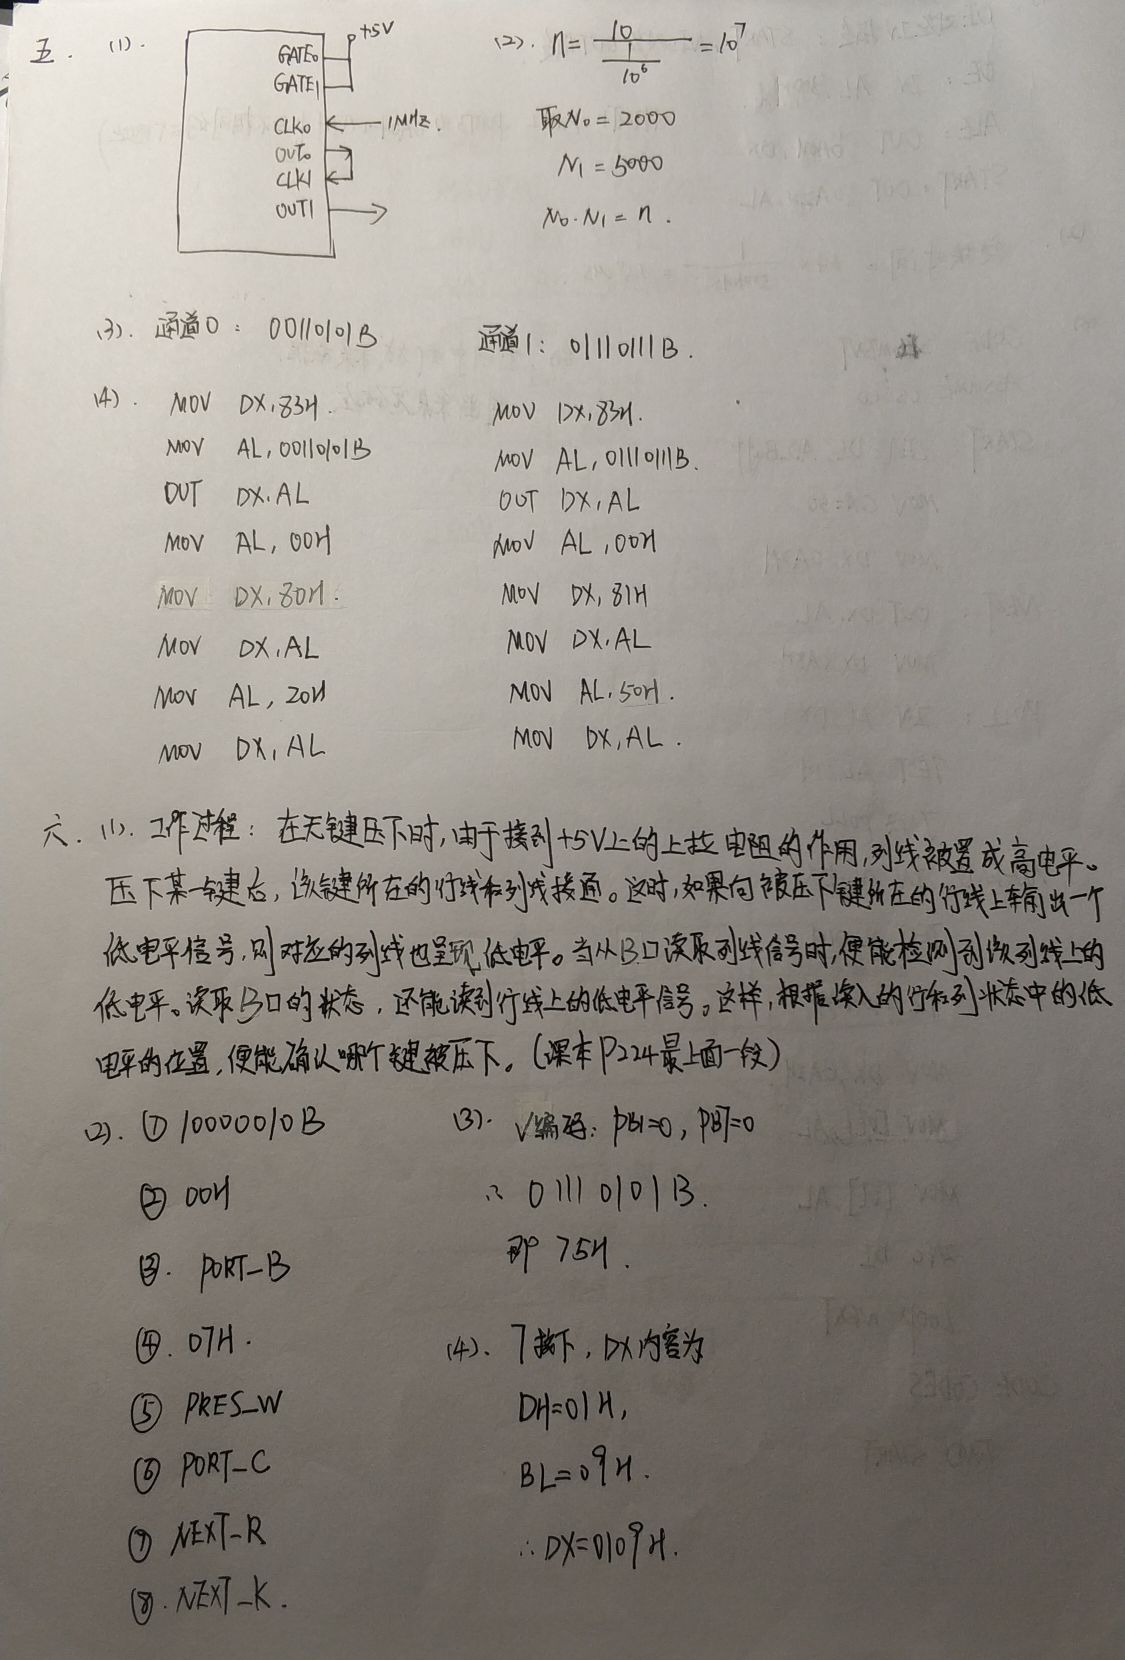 五. (1).
+5V
GATE0
GATE1
CLK0 1MHz.
OUT0
CLK1
OUT1
(2). n = 10 / (1/10⁶) = 10⁷
取N0 = 2000
N1 = 5000
N0·N1 = n.
(3). 通道0: 00110101B 通道1: 01110111B.
(4). MOV DX, 83H.
MOV AL, 00110101B
OUT DX, AL
MOV AL, 00H
MOV DX, 80H.
MOV DX, AL
MOV AL, 20H
MOV DX, AL
MOV DX, 83H.
MOV AL, 01110111B.
OUT DX, AL
MOV AL, 00H
MOV DX, 81H
MOV DX, AL
MOV AL, 50H.
MOV DX, AL.
六. (1). 工作过程: 在无键压下时,由于接到+5V上的上拉电阻的作用,列线被置成高电平。
压下某一键后,该键所在的行线和列线接通。这时,如果向被压下键所在的行线上输出一个
低电平信号,则对应的列线也呈现低电平。当从B口读取列线信号时,便能检测到该列线上的
低电平。读取B口的状态,还能读到行线上的低电平信号。这样,根据读入的行和列状态中的低
电平的位置,便能确认哪个键被压下。(课本P224最上面一段)
(2). ① 1000010B
② 00H
③. PORT_B
④. 07H.
⑤ PRES_W
⑥ PORT_C
⑦ NEXT_R
⑧. NEXT_K.
(3). √编码: PB1=0, PB7=0
∴ 01110101B.
即 75H.
(4). 7按下, DX内容为
DH=01H,
BL=09H.
∴DX=0109H.